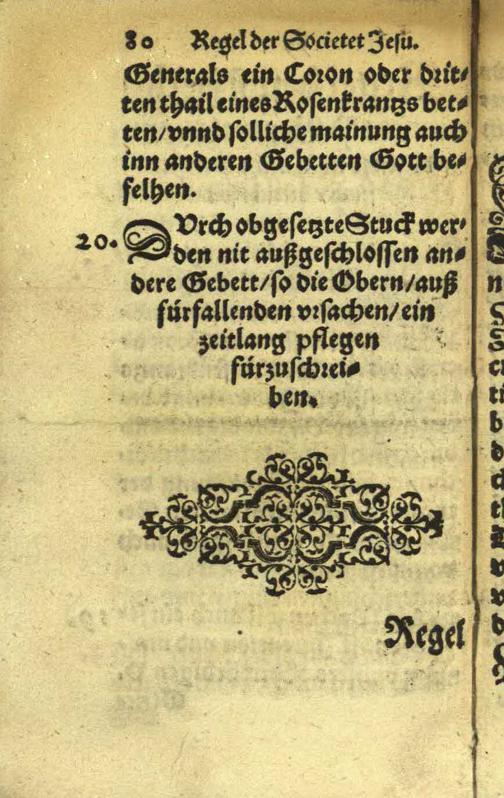 80 Regel der Societet Jesu.
Generals ein Coron oder drit-
ten thail eines Rosenkrantzs bet-
ten/vnnd solliche mainung auch
inn anderen Gebetten Gott be-
felhen.
20. DVrch obgesetzte Stuck wer-
den nit außgeschlossen an-
dere Gebett/so die Obern/auß
fürfallenden vrsachen/ein
zeitlang pflegen
fürzuschrei-
ben.
Regel